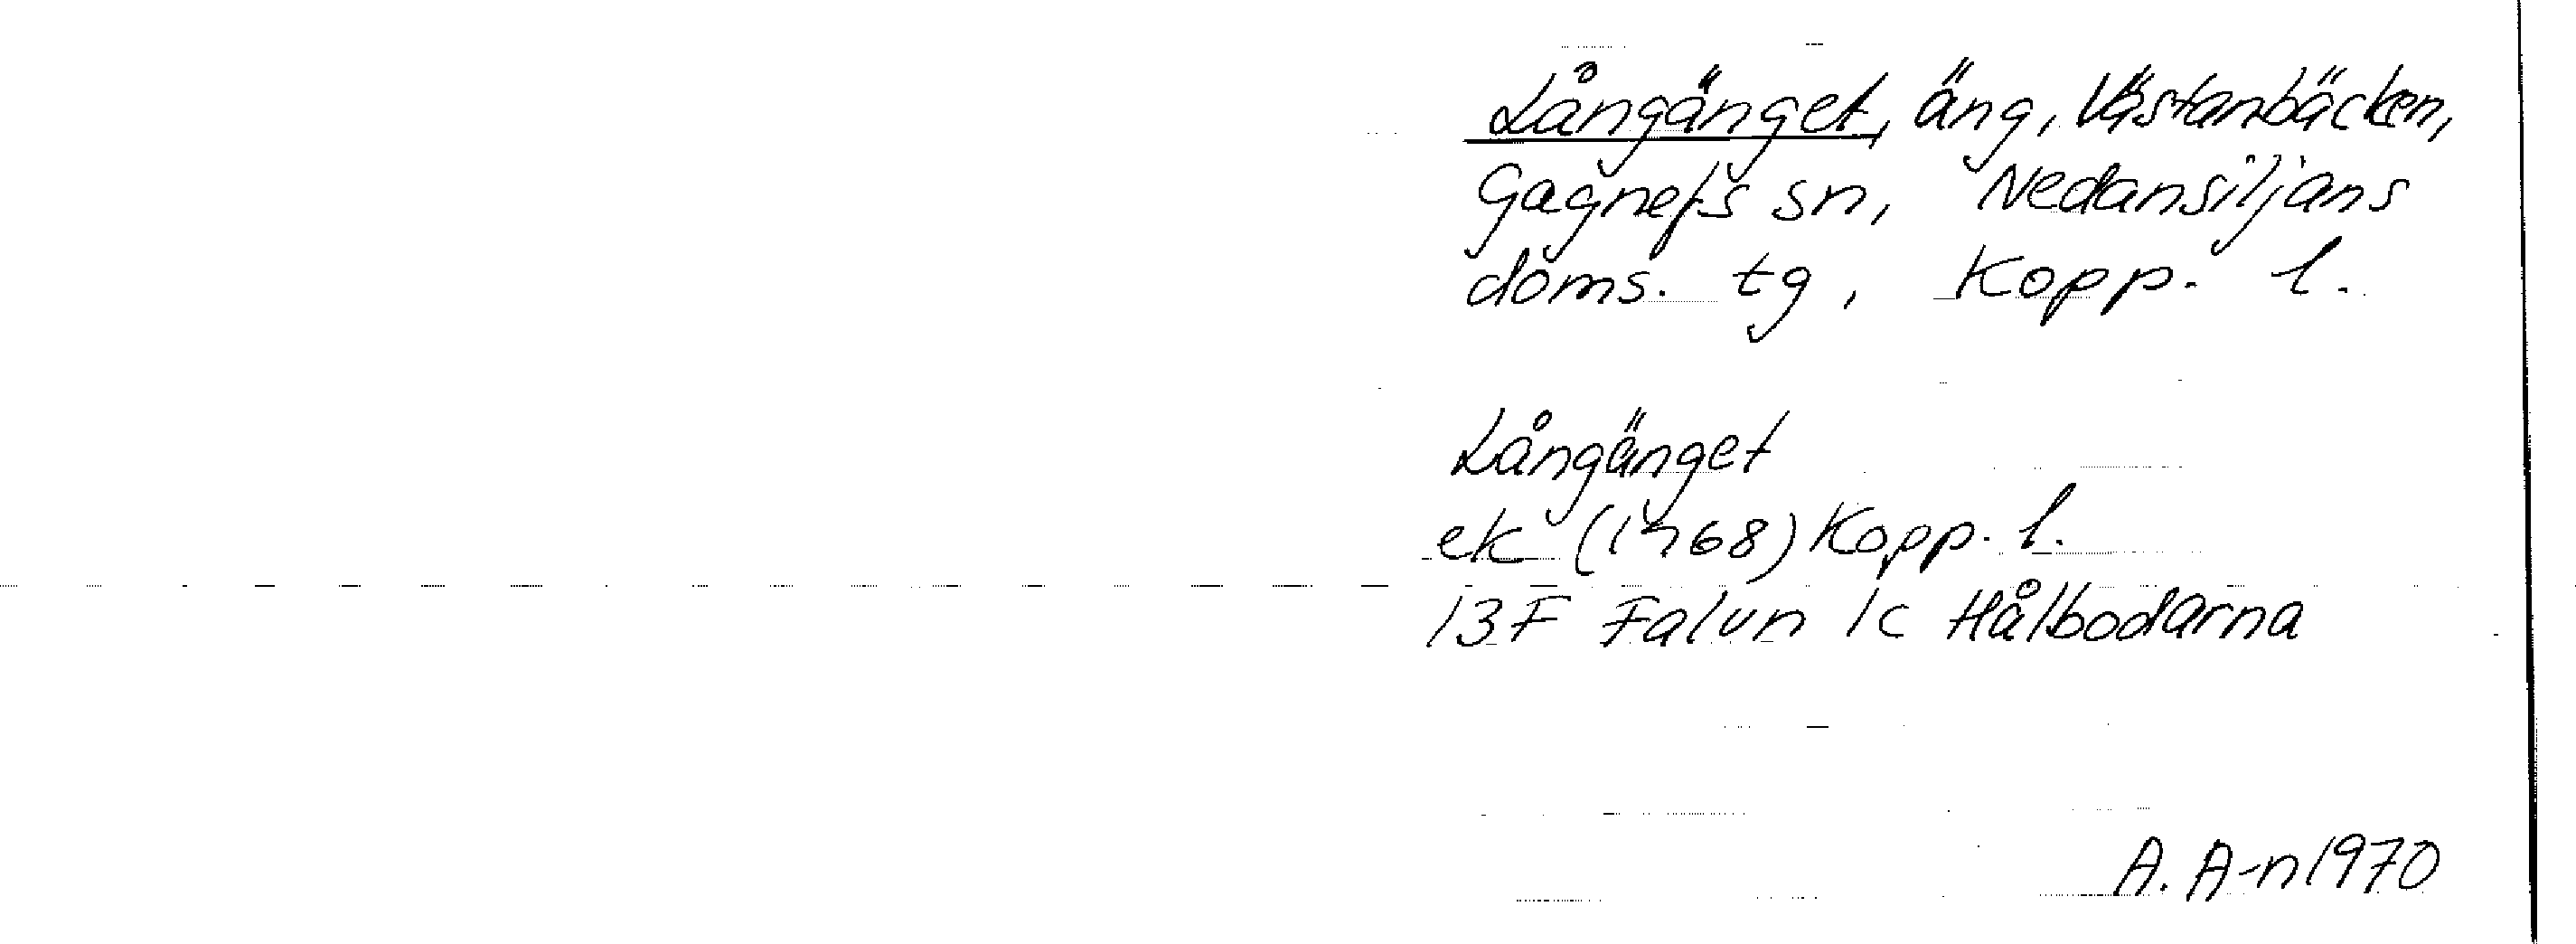 Långänget, äng, Västanbäcken,
Gagnefs sn, Nedansiljans
doms. tg, Kopp. l.
Långänget
ek (1968) Kopp. l.
13F Falun 1c Hålbodarna
A. A-n 1970